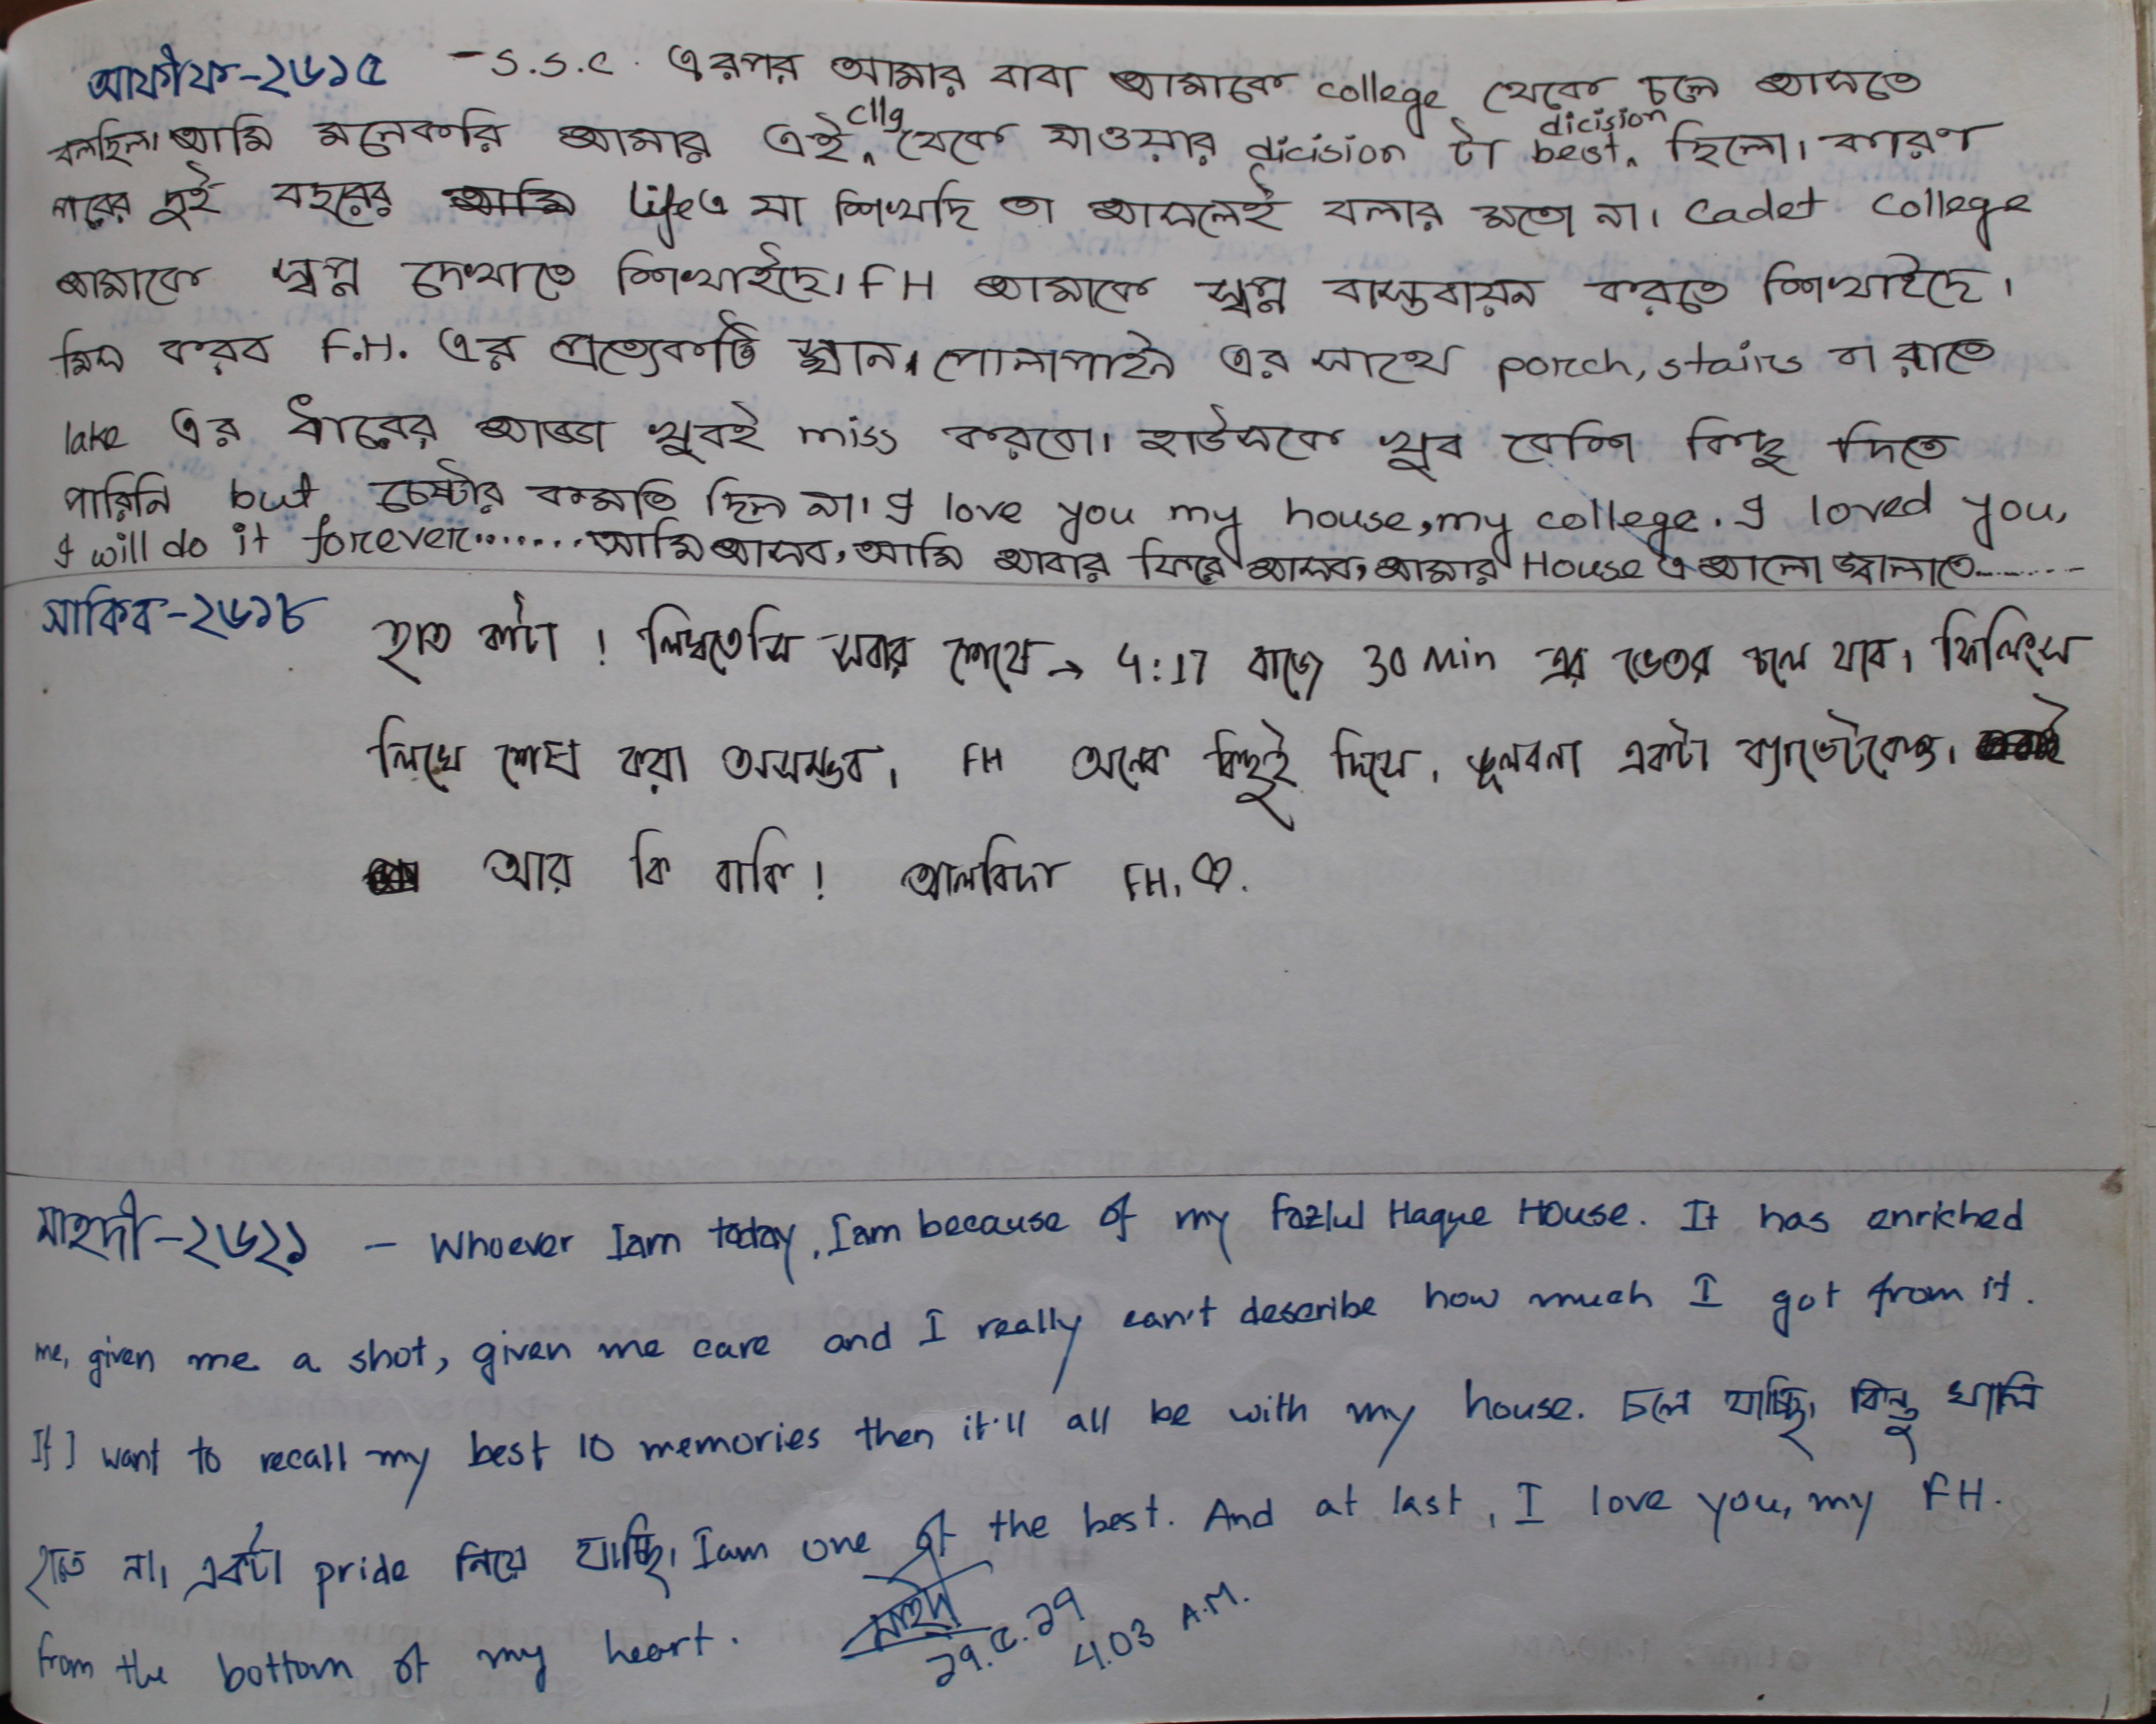 আফীফ-২৬১৫ - S.S.C. এরপর আমার বাবা আমাকে college থেকে চলে আসতে
বলছিল। আমি মনেকরি আমার এই cllg থেকে যাওয়ার dicision টা best dicision ছিলো। কারণ
পরের দুই বছরের life এ যা শিখছি তা আসলেই বলার মতো না। Cadet College
আমাকে স্বপ্ন দেখাতে শিখাইছে। FH আমাকে স্বপ্ন বাস্তবায়ন করতে শিখাইছে।
মিস করব F.H. এর প্রত্যেকটি স্থান। পোলাপাইন এর সাথে porch, stairs বা রাতে
lake এর ধারের আড্ডা খুবই miss করবো। হাউসকে খুব বেশি কিছু দিতে
পারিনি but চেষ্টার কমতি ছিল না। I love you my house, my college. I loved you,
I will do it forever....... আমি আসব, আমি আবার ফিরে আসব, আমার House এ আলো জ্বালাতে.........
সাকিব-২৬১৮ হাত কাটা ! লিখতেসি সবার শেষে → 4:17 বাজে 30 Min এর ভেতর চলে যাব। ফিলিংস
লিখে শেষ করা অসম্ভব। FH অনেক কিছুই দিসে। ভুলবনা একটা ব্যাডেটকেও।
আর কি বাকি ! আলবিদা FH. ♡.
মাহদী-২৬২১ - Whoever I am today, I am because of my Fazlul Haque House. It has enriched
me, given me a shot, given me care and I really can't describe how much I got from it.
If I want to recall my best 10 memories then it'll all be with my house. চলে যাচ্ছি। কিন্তু খালি
হাতে না। একটা pride নিয়ে যাচ্ছি। I am one of the best. And at last, I love you, my FH.
from the bottom of my heart. মাহদী
4.03 A.M.